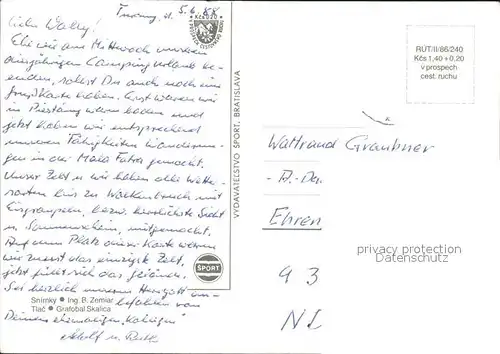 Turany, d. 5.6.88
Liebe Wally!
Ehe wir am Mittwoch unseren
diesjährigen Campingurlaub be-
enden, sollst Du auch noch eine
Grußkarte haben. Erst waren wir
in Piestany warm baden und
jetzt haben wir entsprechend
unseren Fähigkeiten Wanderun-
gen in der Mala Fatra gemacht.
Unser Zelt u. wir haben alle Wetter-
arten bis zu Wolkenbruch mit
bezw. herrlichste Sicht
u. Sonnenschein, mitgemacht.
Auf dem Platz dieser Karte waren
wir zuerst das einzigste Zelt,
jetzt füllt sich das Gelände.
Sei herzlich unserem Herrgott an-
befohlen von
Deinem ehemaligen "Kollegen"
Adolf u. Ruth
Snímky ● Ing. B. Zemiar
Tlač ● Grafobal Skalica
Kčs 0,20
VYDAVATEĽSTVO ŠPORT, BRATISLAVA
ŠPORT
RÚT/II/86/240
Kčs 1,40+0,20
v prospech
cest. ruchu
Waltraud Graubner
Ehren
9 3
privacy protection
Datenschutz